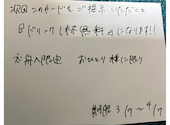 次回 このカードをご提示いただくと
1ドリンク1杯無料になります!!
お一人限定 おひとり様に限り
期限 3/7〜4/7